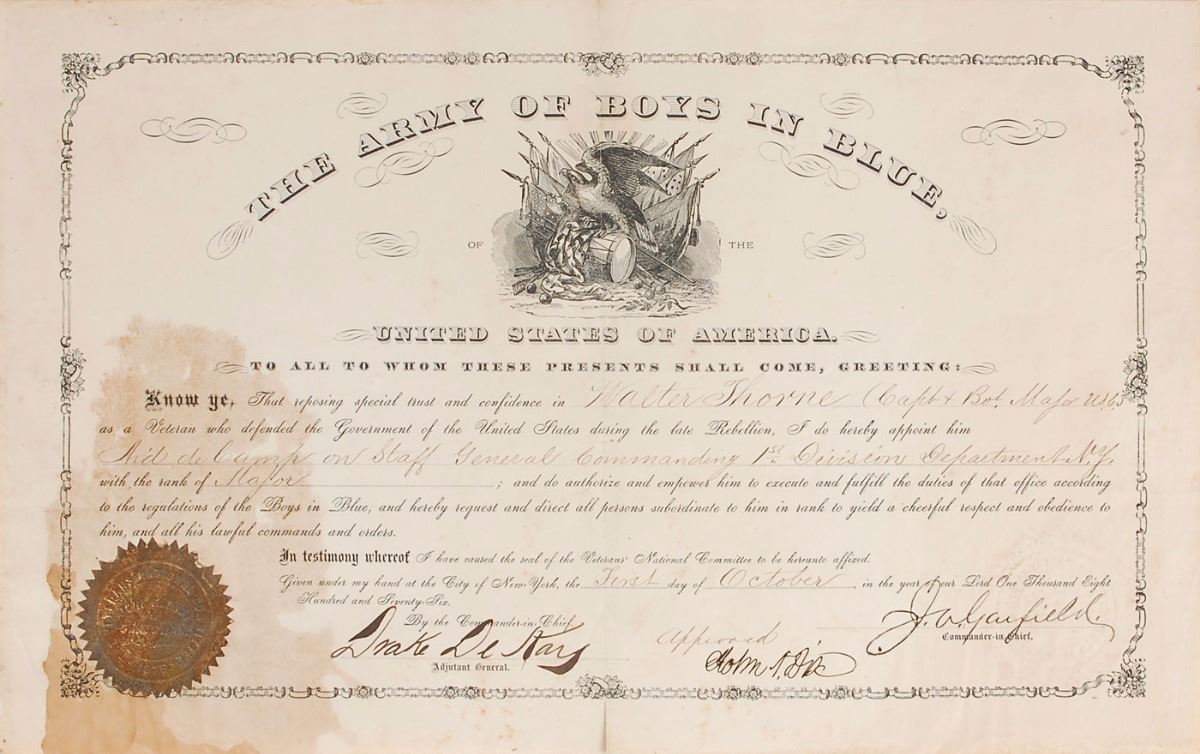 THE ARMY OF BOYS IN BLUE,
OF THE
UNITED STATES OF AMERICA.
TO ALL TO WHOM THESE PRESENTS SHALL COME, GREETING:
Know ye, That reposing special trust and confidence in Walter Thorne (Capt & Bvt. Major
as a Veteran who defended the Government of the United States during the late Rebellion, I do hereby appoint him
Aid de Camp on Staff General Commanding 1st Division Department N.Y.
with the rank of Major ; and do authorize and empower him to execute and fulfill the duties of that office according
to the regulations of the Boys in Blue, and hereby request and direct all persons subordinate to him in rank to yield a cheerful respect and obedience to
him, and all his lawful commands and orders.
In testimony whereof I have caused the seal of the Veterans' National Committee to be hereunto affixed.
Given under my hand at the City of New-York, the First day of October in the year of our Lord One Thousand Eight
Hundred and Seventy-Six.
By the Commander-in-Chief,
Drake De Kay
Adjutant General.
Approved
John A. Dix
J. A. Garfield.
Commander-in-Chief.